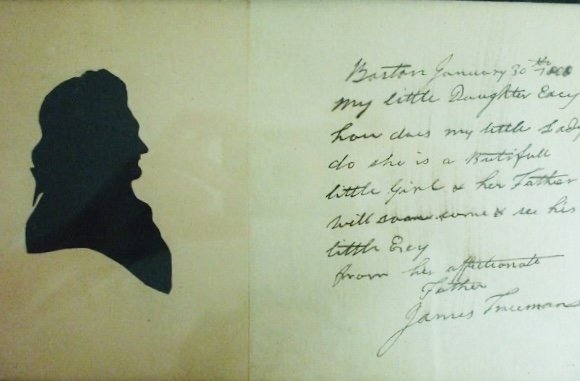 Boston January 30th
My little Daughter Eacy
how does my little Lady
do she is a Butifull
little Girl & her Father
will soon come & see his
little Ecy
from her affectionate
Father
James Truman